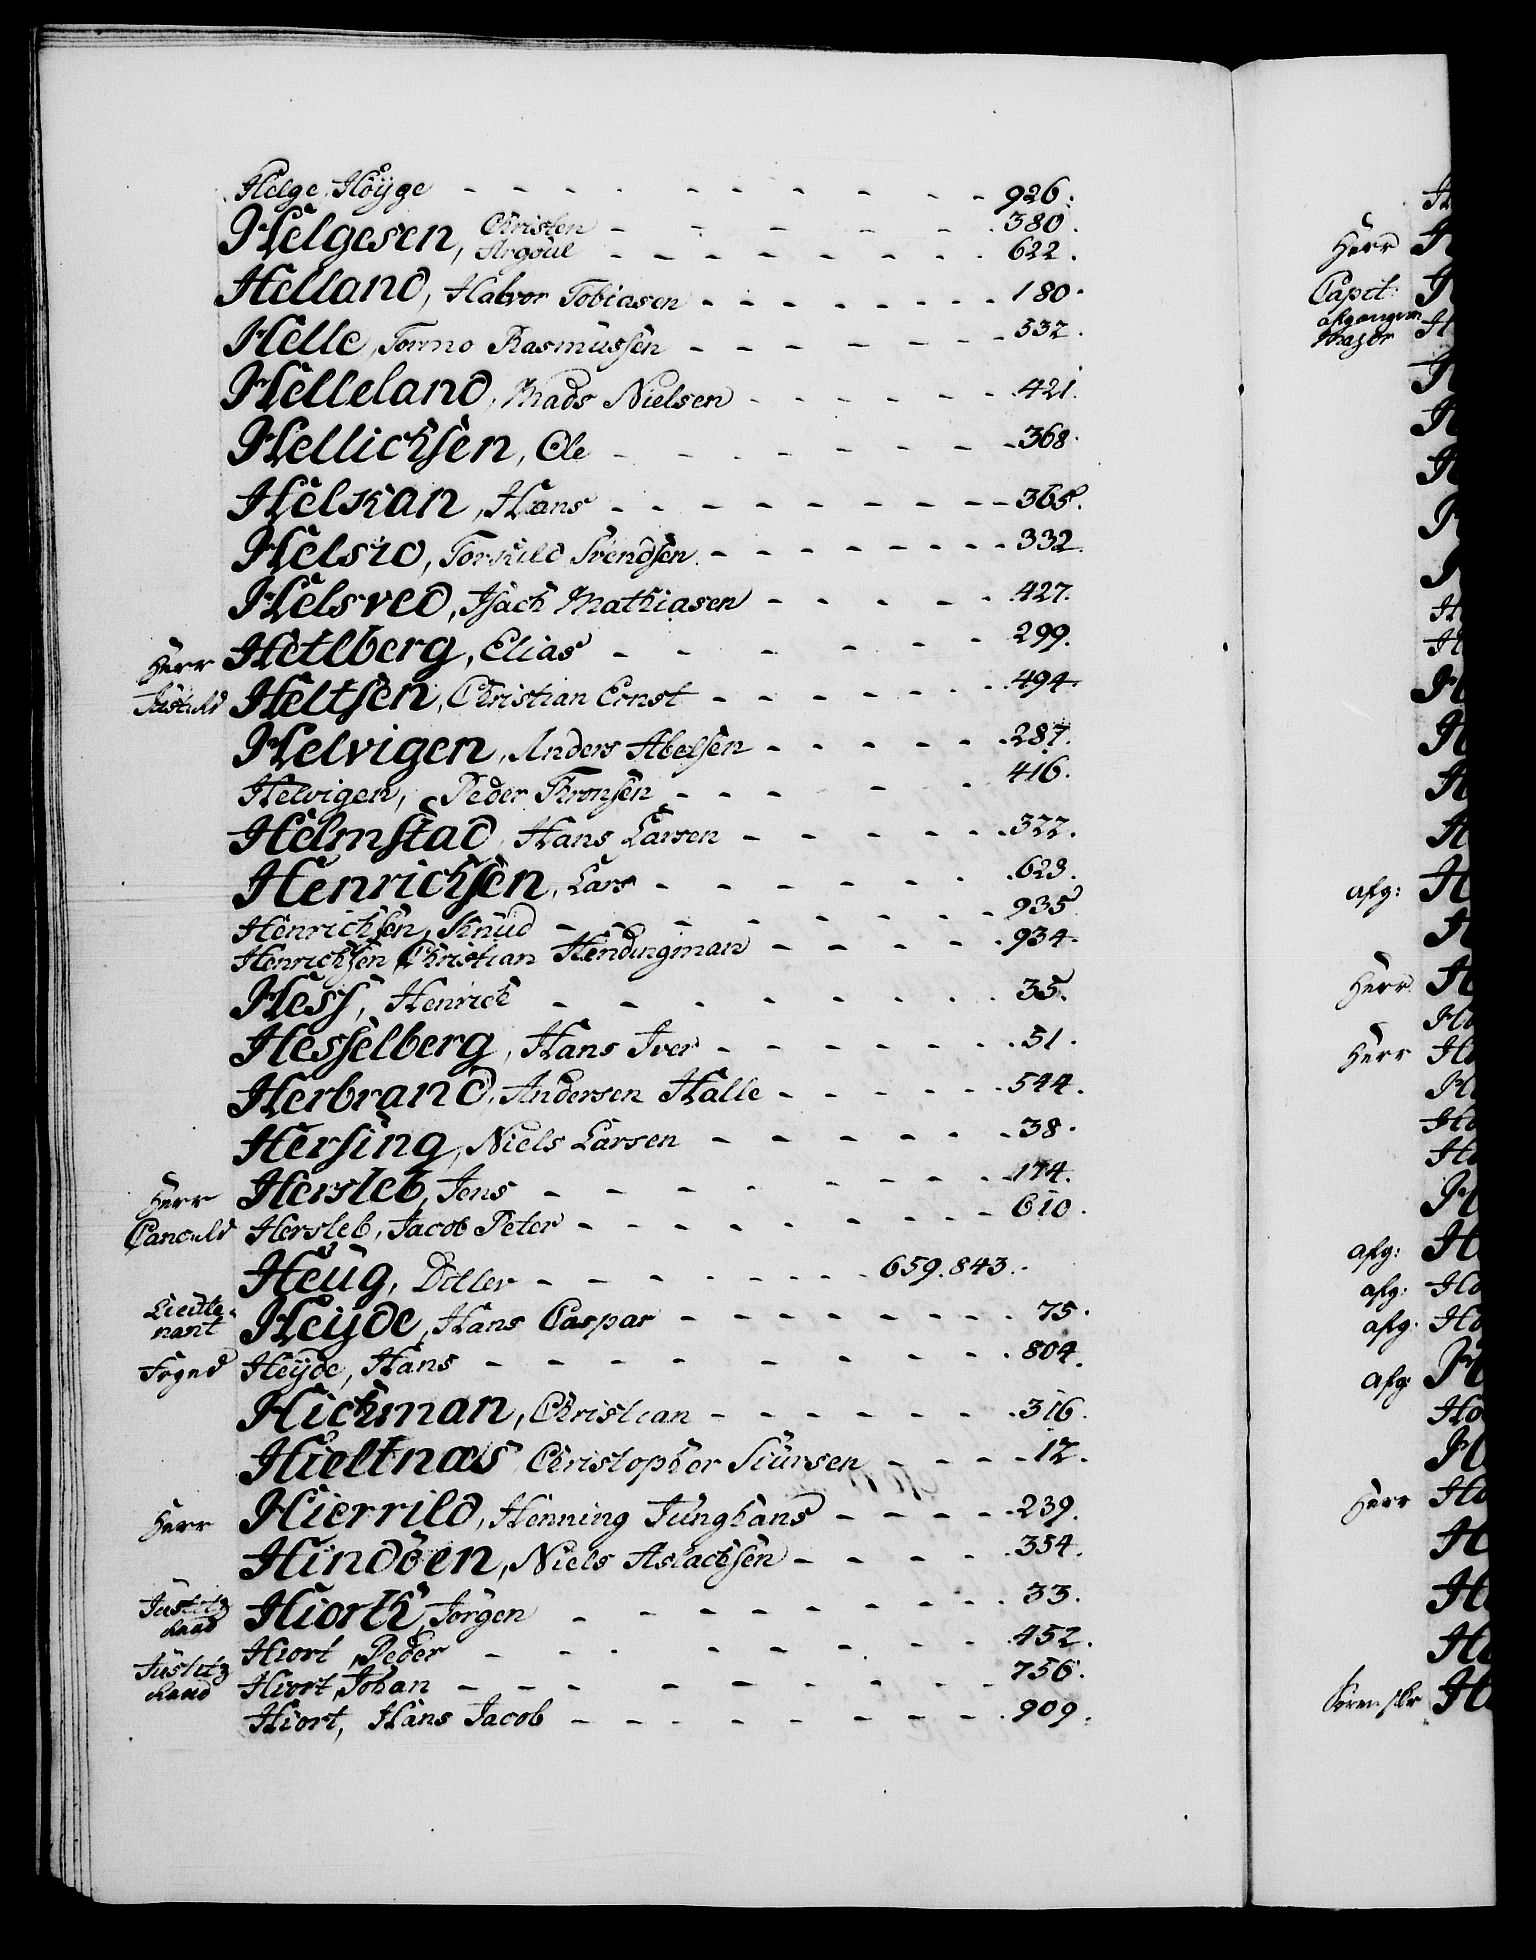 Helge Höÿge - - - - - - - - - - 926.
Helgesen, Christen - - - - - - 380.
Argoul - - - - - - - - 622.
Helland, Halvor Tobiasen - - - - - - - 180.
Helle, Tormo Rasmussen - - - - - - - 532.
Helleland, Mads Nielsen - - - - - - 421.
Hellichsen, Ole - - - - - - - 368.
Helkan, Hans - - - - - - - - - 365.
Helsio, Torkild Svendsen - - - - - - - 332.
Helsved, Isach Mathiasen - - - - - 427.
Herr Hetlberg, Elias - - - - - - 299.
Heltsen, Christian Ernst - - - - - - - 494.
Helvigen, Anders Abelsen - - - - - 287.
Helvigen, Peder Thronsen - - - - - 416.
Helmstad, Hans Larsen - - - - - - 322.
Henrichsen, Lars - - - - - - 623.
Henrichsen, Knud - - - - - - - - 935.
Henrichsen, Christian Hendingman - - - - - 934.
Hess, Henrich - - - - - - - 35.
Hesselberg, Hans Iver - - - - - - - 51.
Herbrand, Andersen Halle - - - - - 544.
Hersing, Niels Larsen - - - - - - 38.
Herr Hersleb, Jens - - - - - - - - 174.
Hersleb, Jacob Peter - - - - - - - - 610.
Heüg, Ditler - - - - - - - - 659.843.
Lieute-
nant Heÿde, Hans Caspar - - - - - - - - 75.
Foged Heÿde, Hans - - - - - - - - - 804.
Hichman, Christian - - - - - - - 316.
Hieltnæs Christopher Siursen - - - - 12.
Herr Hierrild, Henning Junghans - - - - 239.
Hindöen, Niels Aslachsen - - - - 354.
Justitz
Raad Hiorth, Jörgen - - - - - - - - 33.
Hiort, Peder - - - - - - - - 452.
Justitz
Raad Hiort, Johan - - - - - - - - 756.
Hiort, Hans Jacob - - - - - - - - 909.
Herr
Capit:
Major
afg:
Herr
Herr
afg:
afg:
afg:
afg:
Herr